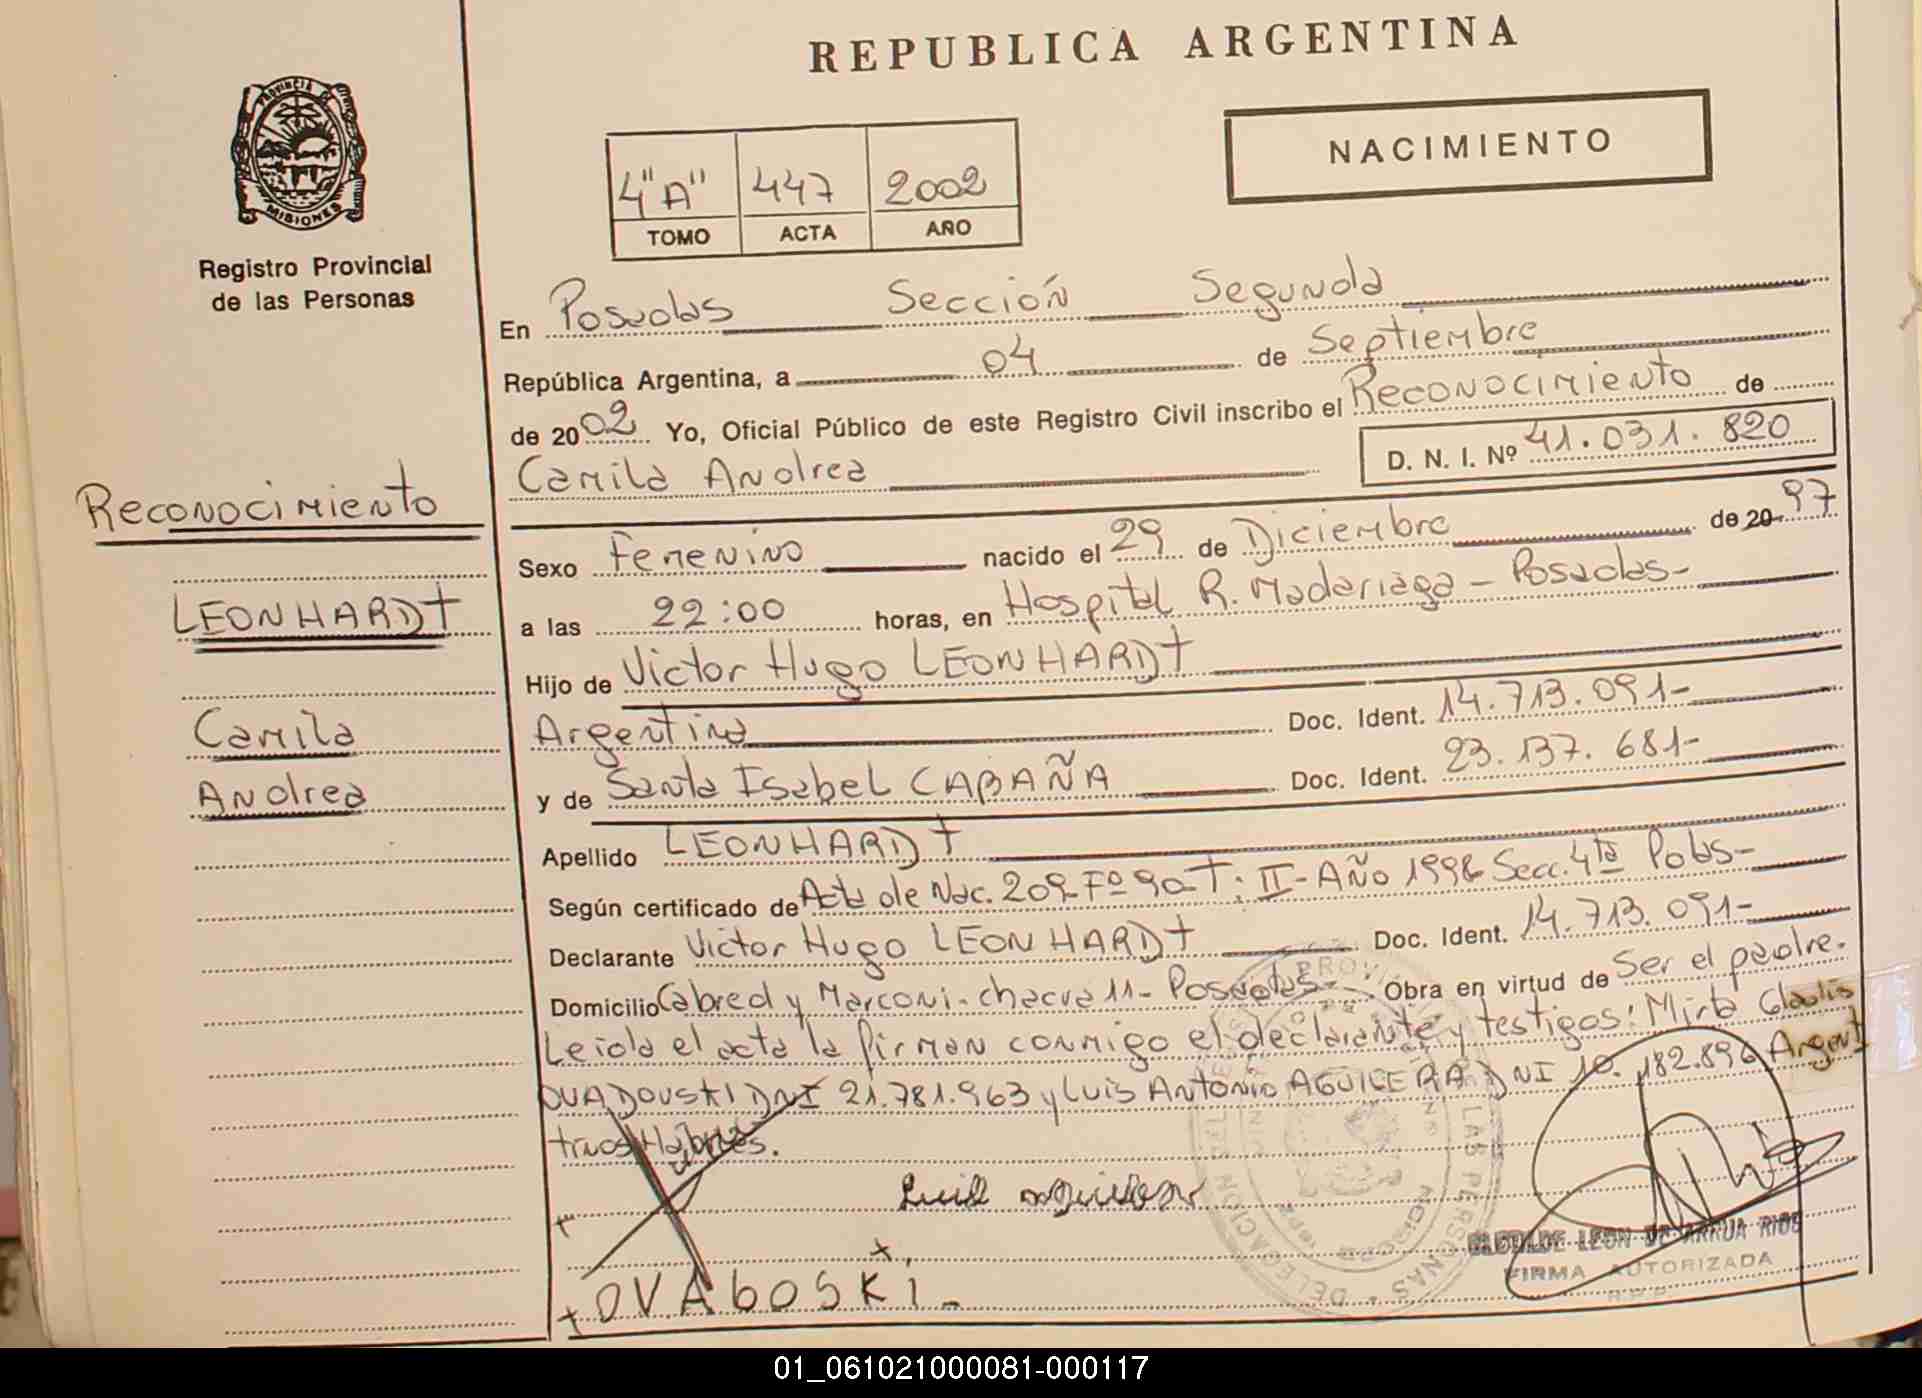 REPUBLICA ARGENTINA
PROVINCIA DE
MISIONES
Registro Provincial
de las Personas
NACIMIENTO
4"A" 447 2002
TOMO ACTA AÑO
En Posadas Sección Segunda
República Argentina, a 04 de Septiembre
de 2002 Yo, Oficial Público de este Registro Civil inscribo el Reconocimiento de
Camila Andrea D. N. I. Nº 41.031.820
Reconocimiento
LEONHARDT
Camila
Andrea
Sexo Femenino nacido el 29 de Diciembre de 20 97
a las 22:00 horas, en Hospital R. Madariaga - Posadas-
Hijo de Victor Hugo LEONHARDT
Argentina Doc. Ident. 14.713.091-
y de Santa Isabel CABAÑA Doc. Ident. 23.137.681-
Apellido LEONHARDT
Según certificado de Acta de Nac. 209 Fº 90 T: II - Año 1998 Secc. 4ta Pdas-
Declarante Victor Hugo LEONHARDT Doc. Ident. 14.713.091-
Domicilio Cabred y Marconi - chacra 11 - Posadas- Obra en virtud de Ser el padre.
Leida el acta la firman conmigo el declarante y testigos: Mirta Gladis
OVADOUSKI DNI 21.781.963 y Luis Antonio AGUILERA DNI 10.182.896 Argent
tinos Habiles.
OVABOSKI-
LEON DE ARRUA RIOS
FIRMA AUTORIZADA
R.P.P.
01_061021000081-000117